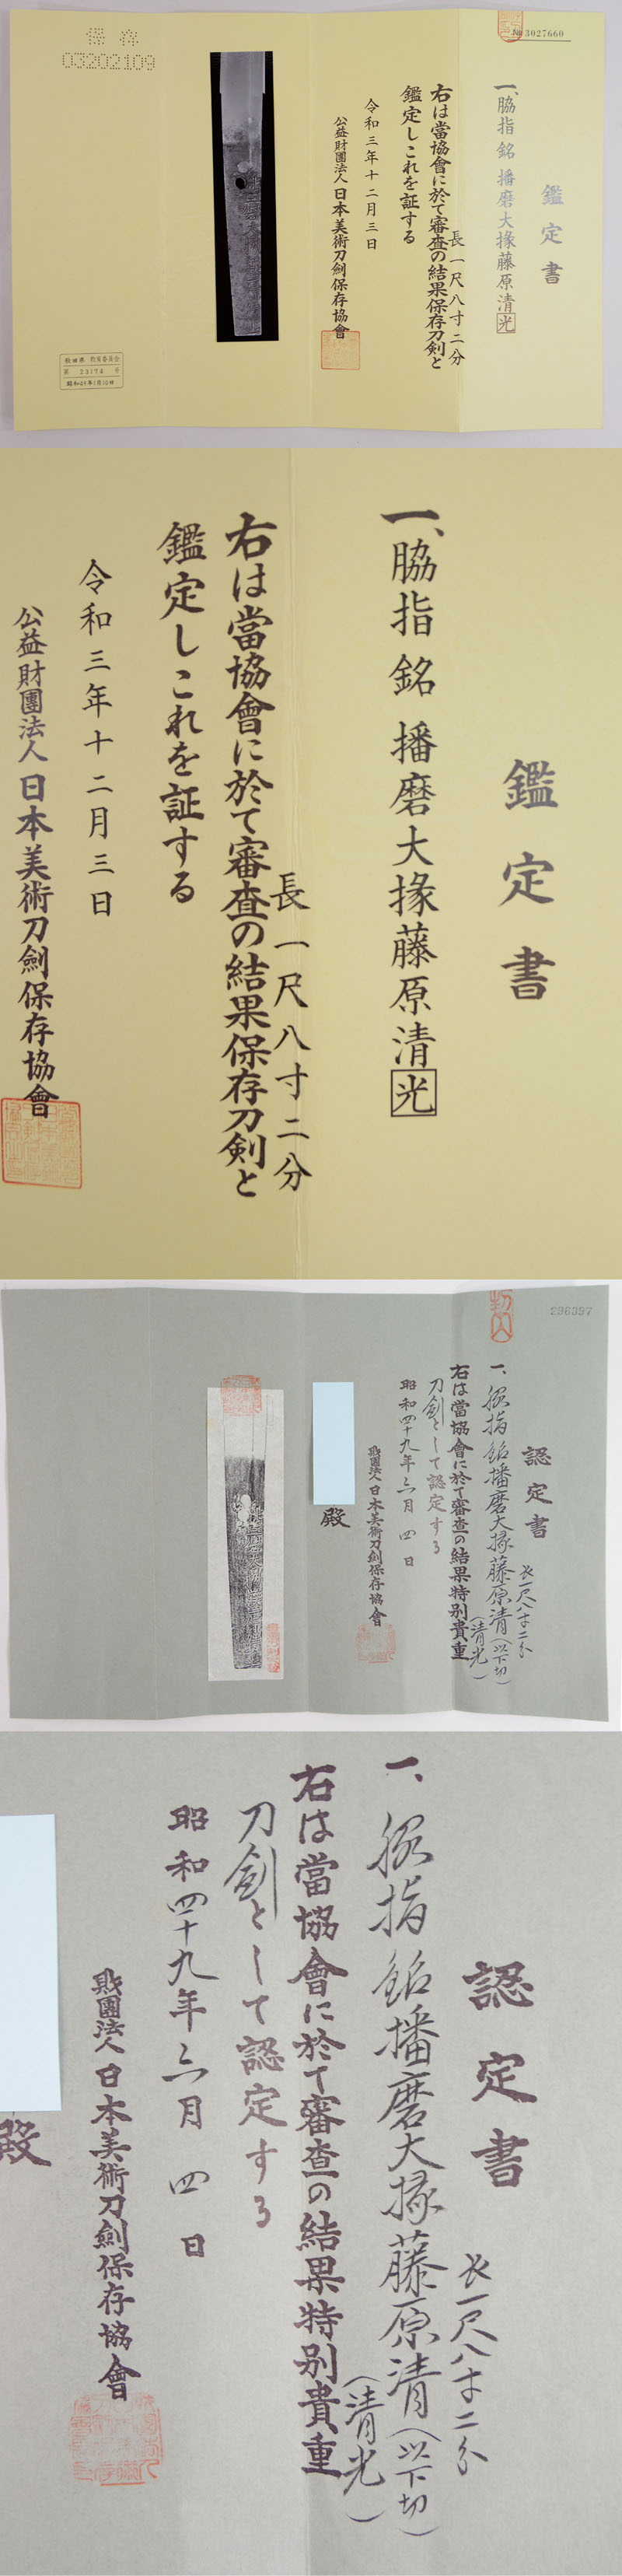 № 3027660
鑑定書
一、脇指 銘 播磨大掾藤原清光
長一尺八寸二分
右は當協會に於て審査の結果保存刀剣と
鑑定しこれを証する
令和三年十二月三日
公益財團法人日本美術刀劍保存協會
保存
03202109
秋田県 教育委員会
第 23174 号
鑑定書
一、脇指 銘 播磨大掾藤原清光
長一尺八寸二分
右は當協會に於て審査の結果保存刀剣と
鑑定しこれを証する
令和三年十二月三日
公益財團法人日本美術刀劍保存協會
認定書
長一尺八寸二分
一、脇指銘播磨大掾藤原清(以下切)
(清光)
右は當協會に於て審査の結果特別貴重
刀劍として認定する
昭和四十九年六月四日
財團法人日本美術刀劍保存協會
殿
認定書
長一尺八寸二分
一、脇指銘播磨大掾藤原清(以下切)
(清光)
右は當協會に於て審査の結果特別貴重
刀劍として認定する
昭和四十九年六月四日
財團法人日本美術刀劍保存協會
殿